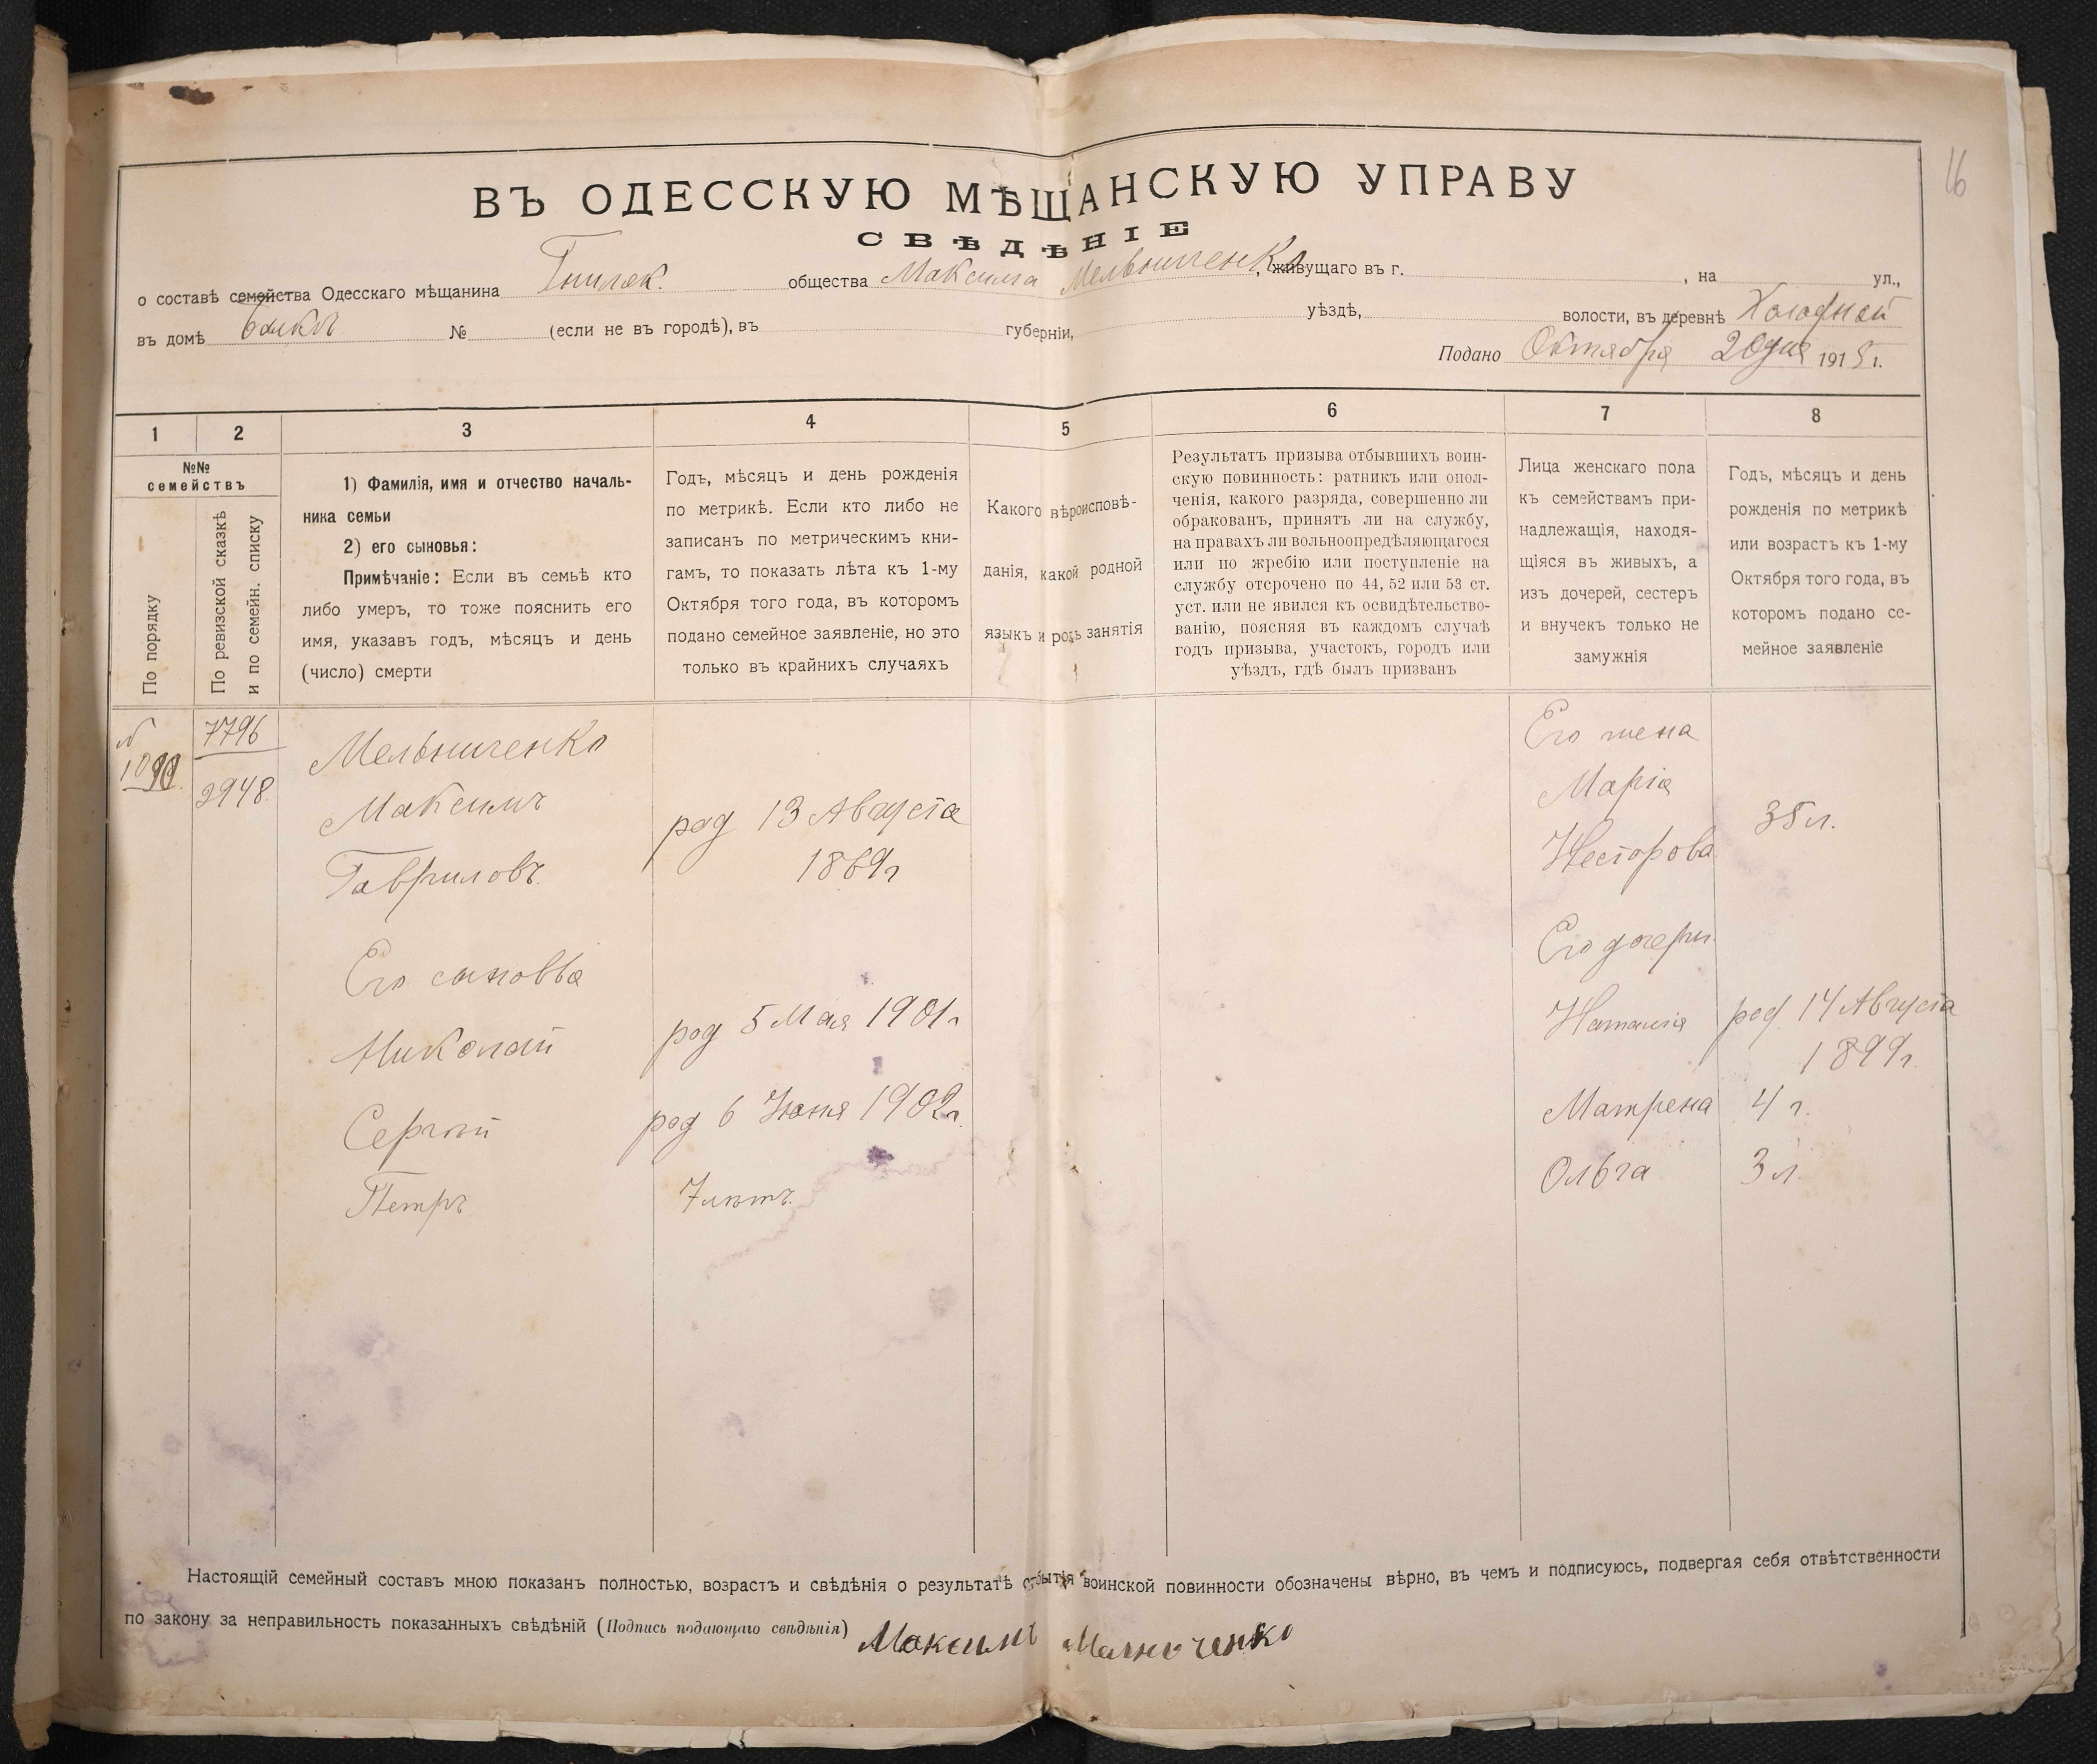 16
ВЪ ОДЕССКУЮ МѢЩАНСКУЮ УПРАВУ
СВѢДѢНІЕ
о составѣ семейства Одесскаго мѣщанина Гниляк. общества Максима Мельниченко, живущаго въ г. , на ул.,
въ домѣ № (если не въ городѣ), въ губерніи, уѣздѣ, волости, въ деревнѣ Холодной
Подано Октября 20 дня 1915 г.
1 2 3 4 5 6 7 8
№№
семействъ
По порядку
По ревизской сказкѣ
и по семейн. списку
1) Фамилія, имя и отчество началь-
ника семьи
2) его сыновья:
Примѣчаніе: Если въ семьѣ кто
либо умеръ, то тоже пояснить его
имя, указавъ годъ, мѣсяцъ и день
(число) смерти
Годъ, мѣсяцъ и день рожденія
по метрикѣ. Если кто либо не
записанъ по метрическимъ кни-
гамъ, то показать лѣта къ 1-му
Октября того года, въ которомъ
подано семейное заявленіе, но это
только въ крайнихъ случаяхъ
Какого вѣроисповѣ-
данія, какой родной
языкъ и родъ занятія
Результатъ призыва отбывшихъ воин-
скую повинность: ратникъ или опол-
ченія, какого разряда, совершенно ли
обракованъ, принятъ ли на службу,
на правахъ ли вольноопредѣляющагося
или по жребію или поступленіе на
службу отсрочено по 44, 52 или 53 ст.
уст. или не явился къ освидѣтельство-
ванію, поясняя въ каждомъ случаѣ
годъ призыва, участокъ, городъ или
уѣздъ, гдѣ былъ призванъ
Лица женскаго пола
къ семействамъ при-
надлежащія, находя-
щіяся въ живыхъ, а
изъ дочерей, сестеръ
и внучекъ только не
замужнія
Годъ, мѣсяцъ и день
рожденія по метрикѣ
или возрастъ къ 1-му
Октября того года, въ
которомъ подано се-
мейное заявленіе
№
7796
2948
Мельниченко
Максимъ
Гавриловъ
род 13 Августа
1869 г
Его сыновья
Николай
род 5 Мая 1901 г
Сергѣй
род 6 Июня 1902 г.
Петръ
7 лѣтъ
Его жена
Марія
Несторова
38 л.
Его дочери
Наталія
род. 14 Августа
1899 г.
Матрена
4 г.
Ольга
3 л.
Настоящій семейный составъ мною показанъ полностью, возрастъ и свѣдѣнія о результатѣ отбытія воинской повинности обозначены вѣрно, въ чемъ и подписуюсь, подвергая себя отвѣтственности
по закону за неправильность показанныхъ свѣдѣній (Подпись подающаго свѣдѣнія) Максимъ Мелниченко